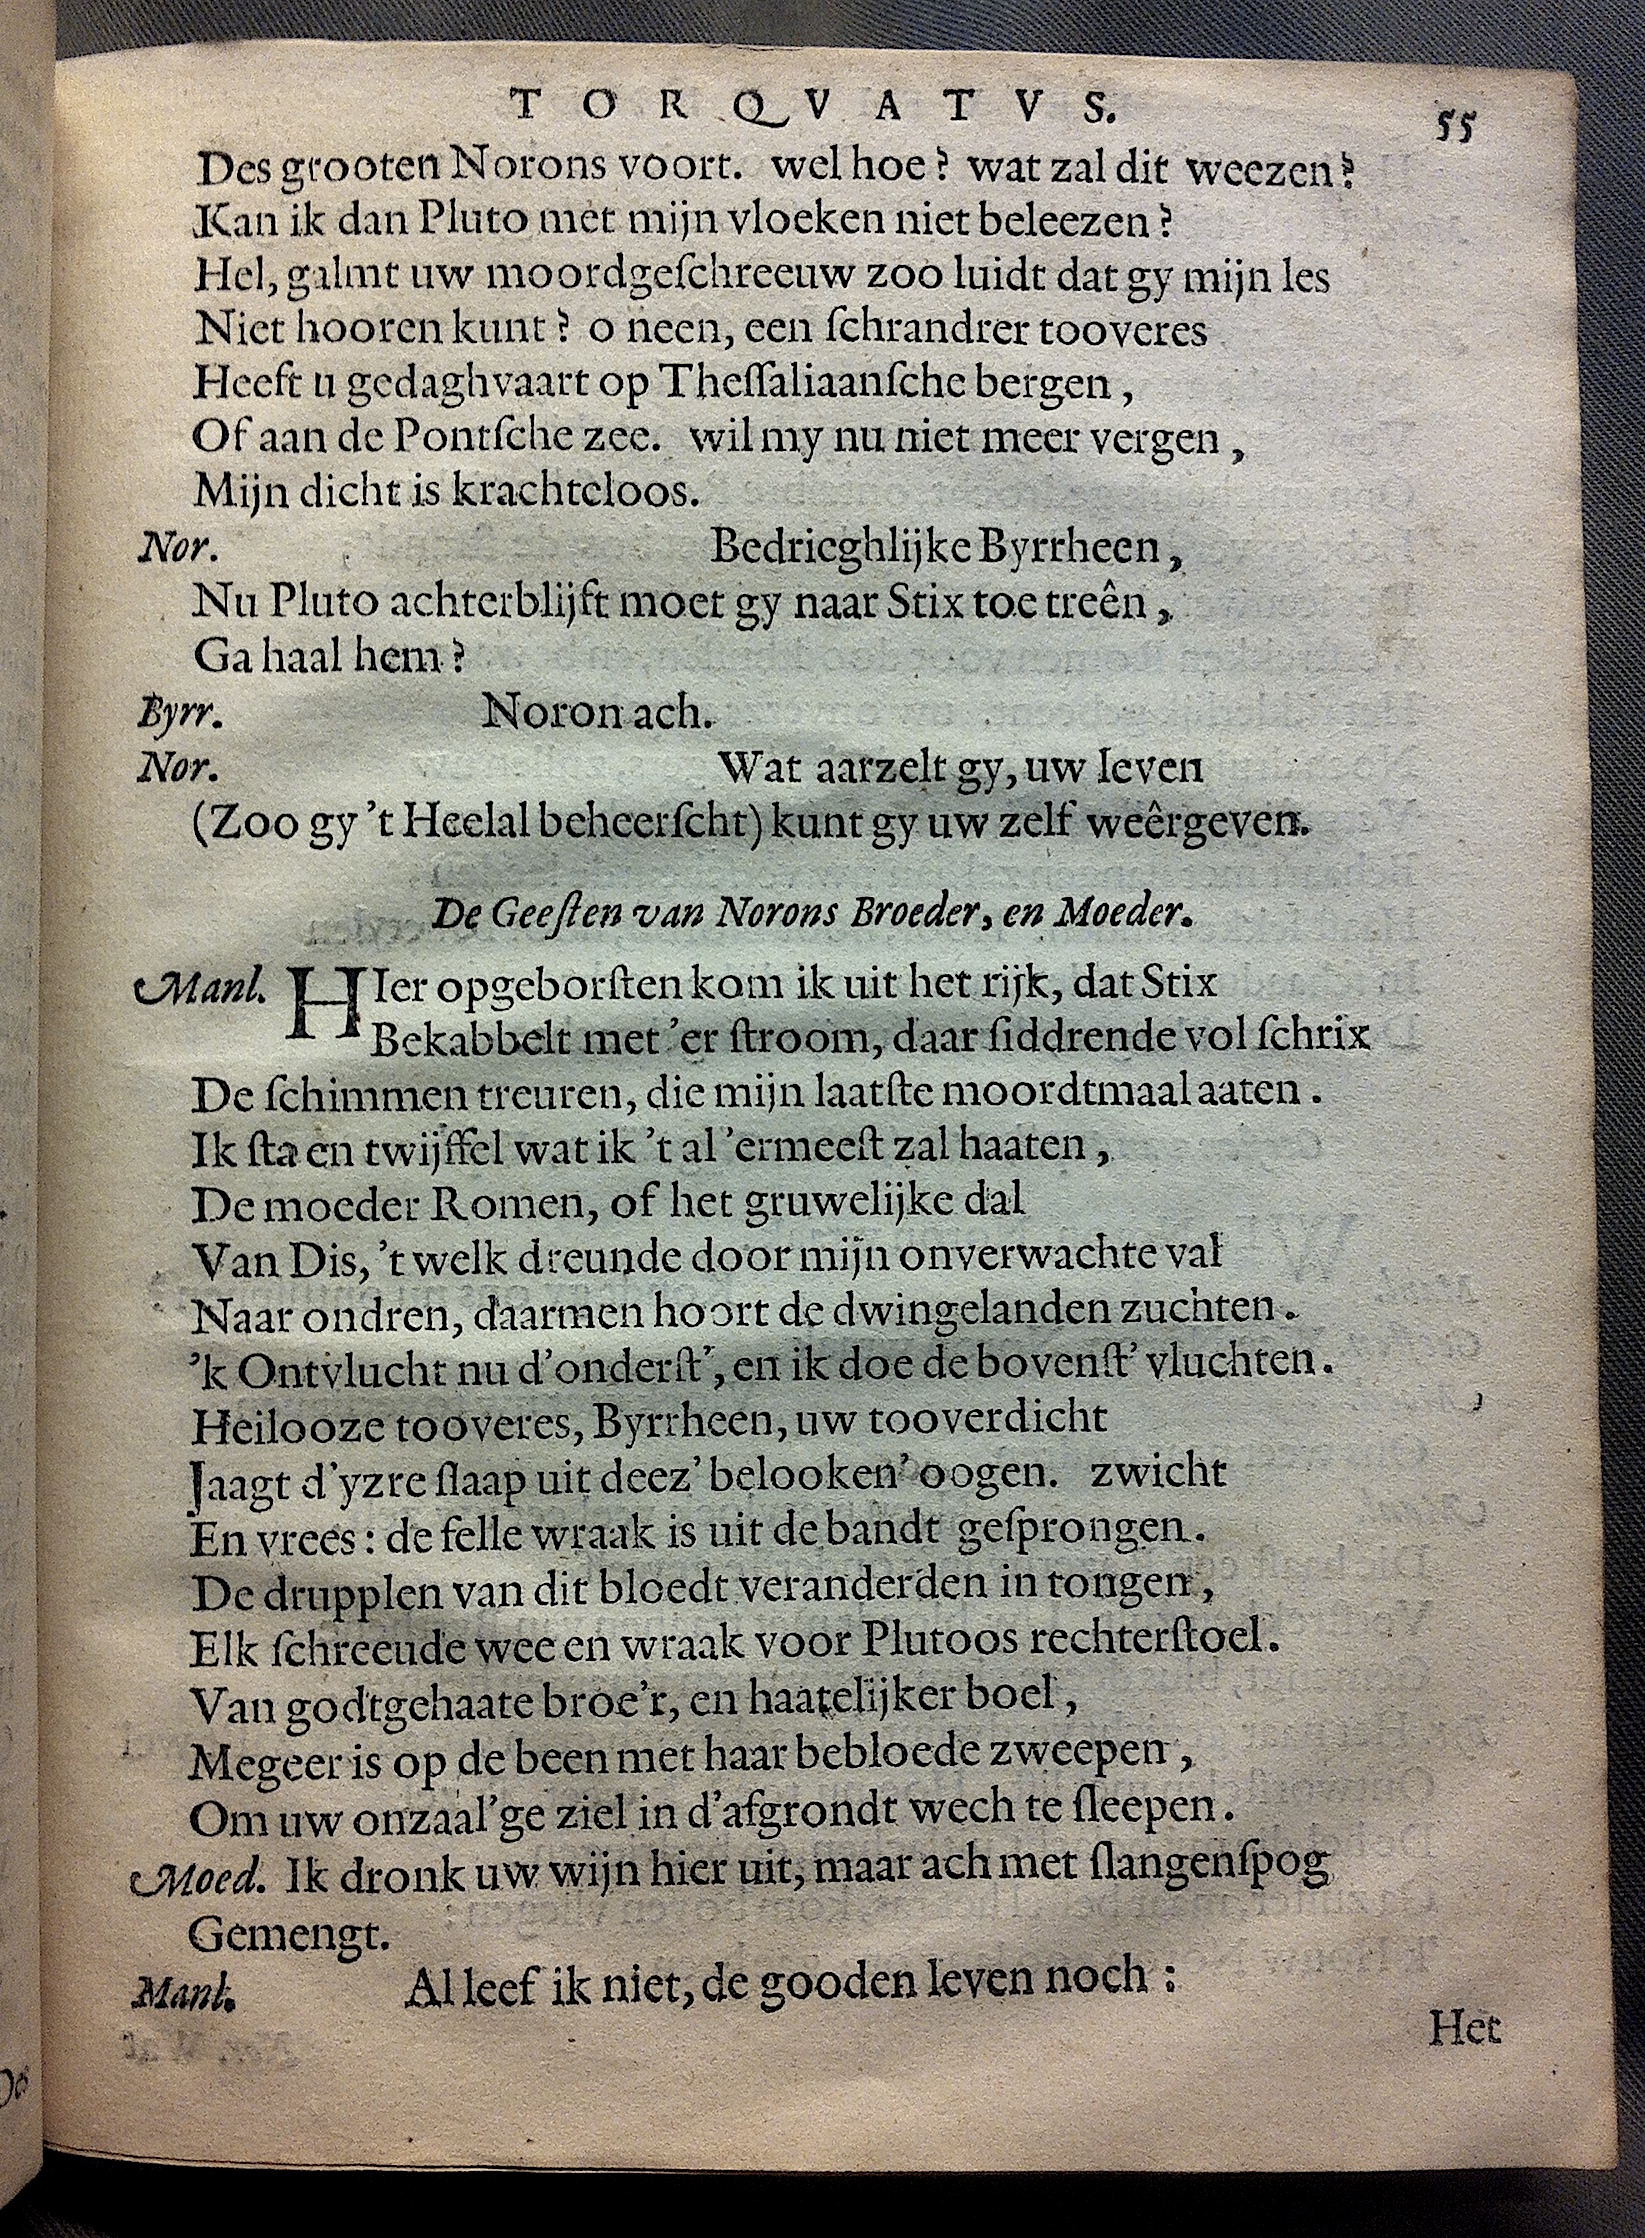 TORQVATVS. 55
Des grooten Norons voort. wel hoe? wat zal dit weezen?
Kan ik dan Pluto met mijn vloeken niet beleezen?
Hel, galmt uw moordgeſchreeuw zoo luidt dat gy mijn les
Niet hooren kunt? o neen, een ſchrandrer tooveres
Heeft u gedaghvaart op Theſſaliaanſche bergen,
Of aan de Pontſche zee. wil my nu niet meer vergen,
Mijn dicht is krachteloos.
Nor. Bedrieghlijke Byrrheen,
Nu Pluto achterblijft moet gy naar Stix toe treên,
Ga haal hem?
Byrr. Noron ach.
Nor. Wat aarzelt gy, uw leven
(Zoo gy 't Heelal beheerſcht) kunt gy uw zelf weêrgeven.
De Geeſten van Norons Broeder, en Moeder.
Manl. HIer opgeborſten kom ik uit het rijk, dat Stix
Bekabbelt met 'er ſtroom, daar ſiddrende vol ſchrix
De ſchimmen treuren, die mijn laatſte moordtmaal aaten.
Ik ſta en twijffel wat ik 't al 'ermeeſt zal haaten,
De moeder Romen, of het gruwelijke dal
Van Dis, 't welk dreunde door mijn onverwachte val
Naar ondren, daarmen hoort de dwingelanden zuchten.
'k Ontvlucht nu d'onderſt', en ik doe de bovenſt' vluchten.
Heilooze tooveres, Byrrheen, uw tooverdicht
Jaagt d'yzre ſlaap uit deez' belooken' oogen. zwicht
En vrees: de felle wraak is uit de bandt geſprongen.
De drupplen van dit bloedt veranderden in tongen,
Elk ſchreeude wee en wraak voor Plutoos rechterſtoel.
Van godtgehaate broe'r, en haatelijker boel,
Megeer is op de been met haar bebloede zweepen,
Om uw onzaal'ge ziel in d'afgrondt wech te ſleepen.
Moed. Ik dronk uw wijn hier uit, maar ach met ſlangenſpog
Gemengt.
Manl. Al leef ik niet, de gooden leven noch:
Het